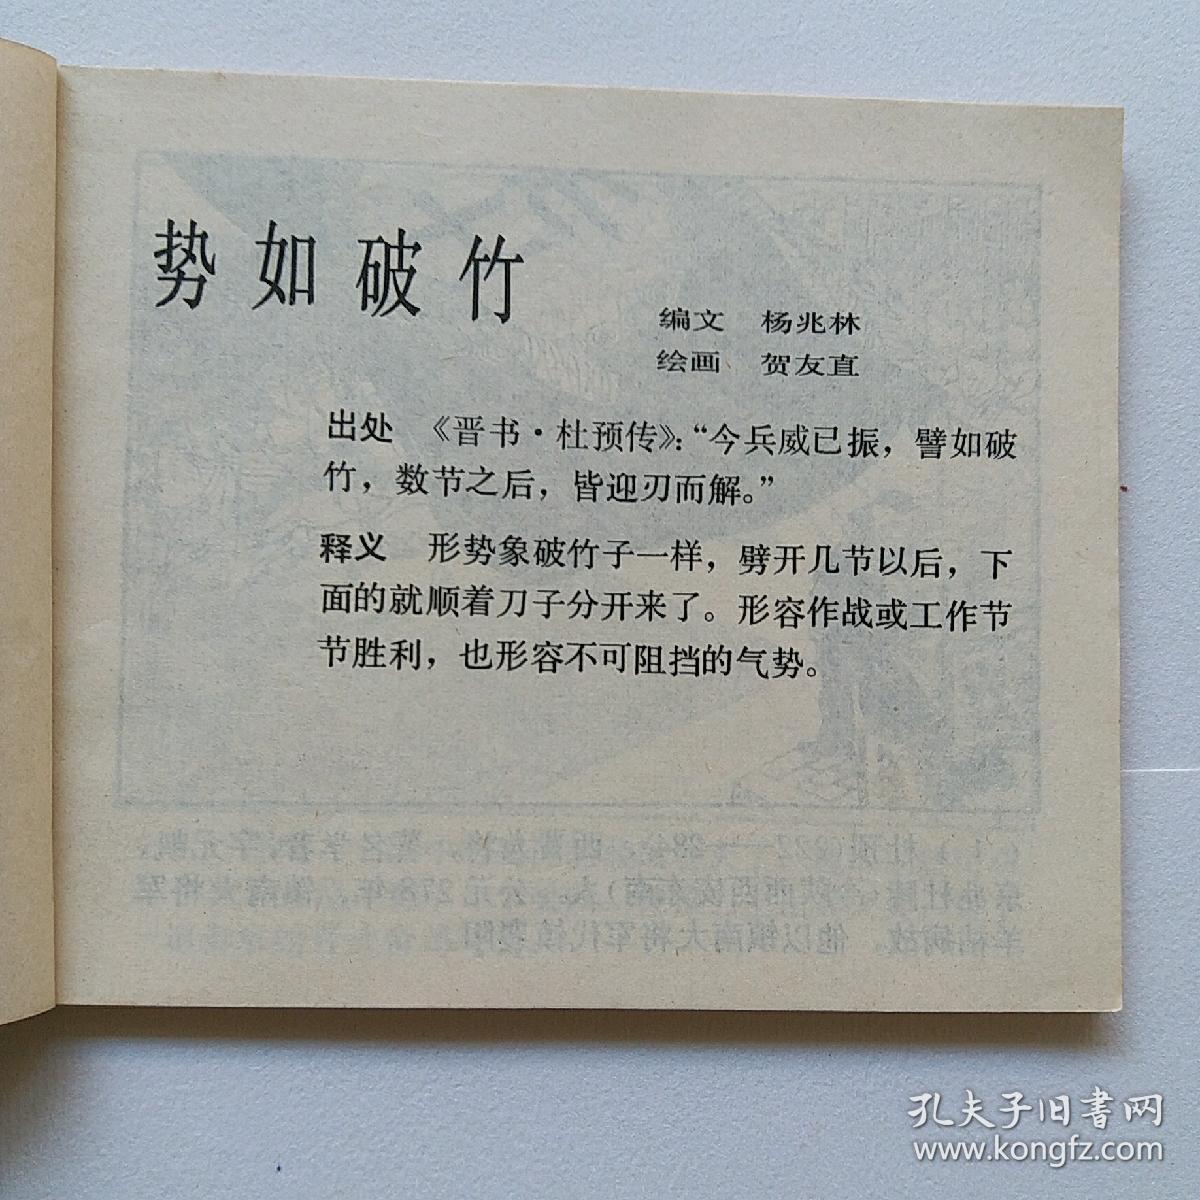 势如破竹
编文 杨兆林
绘画 贺友直
出处 《晋书·杜预传》：“今兵威已振，譬如破
竹，数节之后，皆迎刃而解。”
释义 形势象破竹子一样，劈开几节以后，下
面的就顺着刀子分开来了。形容作战或工作节
节胜利，也形容不可阻挡的气势。
孔夫子旧书网
www.kongfz.com